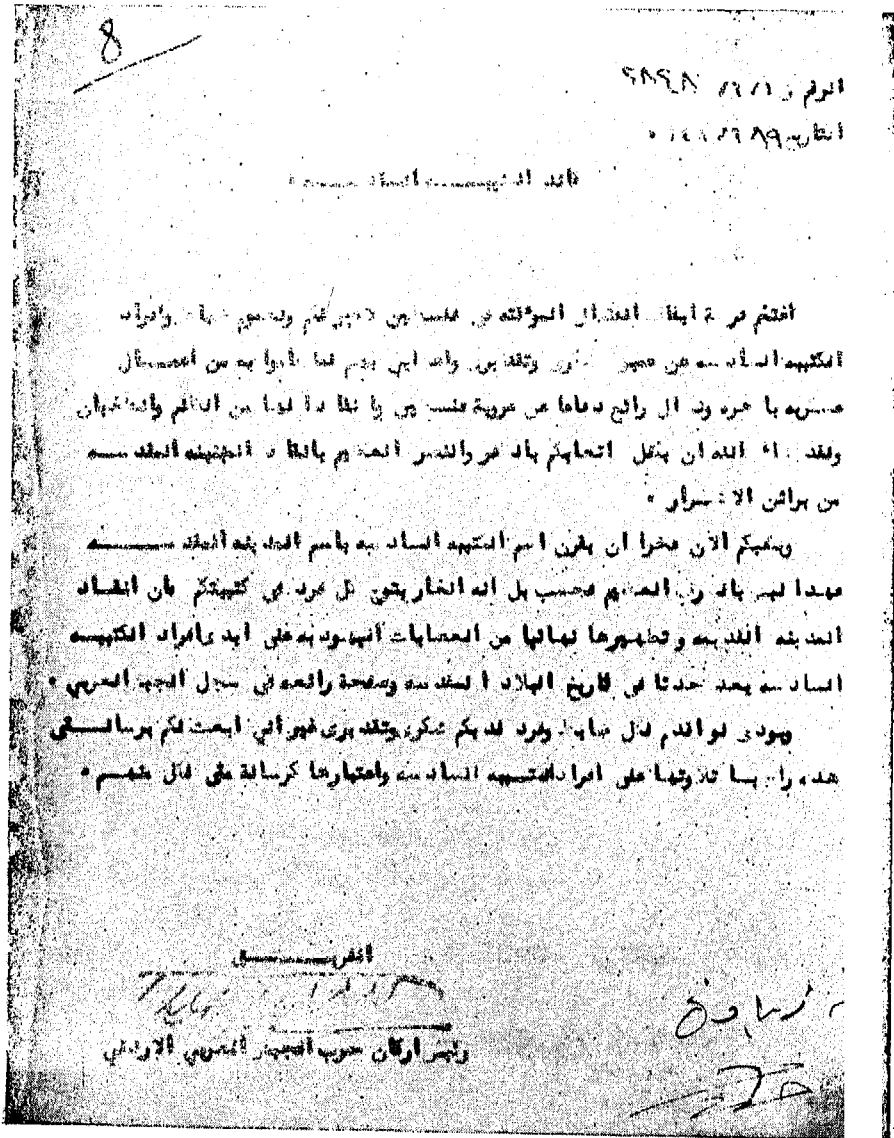 8
الرقم ز /٦/١
التاريخ
قائد الكتيبـــــــه السادســـــه
اغتنم فرصة ايقاف القتال المؤقته في فلسطين لاعبر لكم ولجميع ضباط وافراد
الكتيبه السادسه عن عميق شكري وتقديري واعجابي بهم لما قاموا به من اعمـــال
عسكريه باهره وقتال رائع دفاعا عن عروبة فلسطين وانقاذا لها من الظلم والطغيان
ولقد شاء الله ان يكلل اعمالكم بالنصر بانقاذ المدينه المقدســـه
من براثن الاشـــرار ٠
ويكفيكم الان فخرا ان يقرن اسم الكتيبه السادسه باسم المدينه المقدســـــه
فهذا ليس فحسب بل انه كل فرد في كتيبتكم بان انقـــاذ
المدينه القديمه وتطهيرها نهائيا من العصابات اليهوديه على ايدي افراد الكتيبـــه
السادسه يعد حدثا في تاريخ البلاد المقدسه وصفحة رائعه في سجل المجد العربي ٠
وبودي لو اقدم لكل ضابط وفرد لديكم شكري وتقديري غير اني ابعث لكم برسالـــتي
هذه راجيا تلاوتها على افراد الكتيبه السادسه واعتبارها كرسالة مني لكل منهـــم ٠
الفريـــــــق
رئيس اركان حرب الجيش العربي الاردني